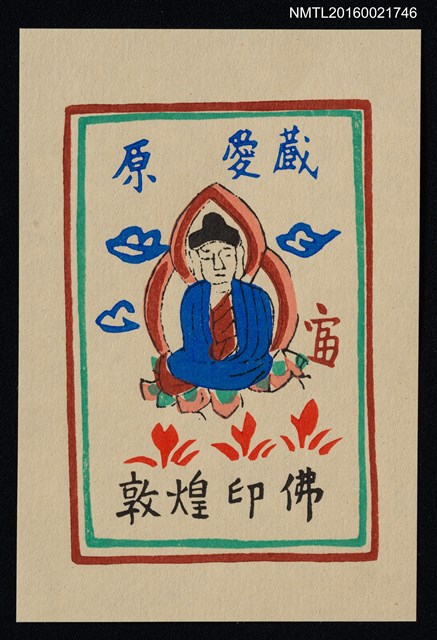 NMTL20160021746
原 愛蔵
富
敦煌印佛